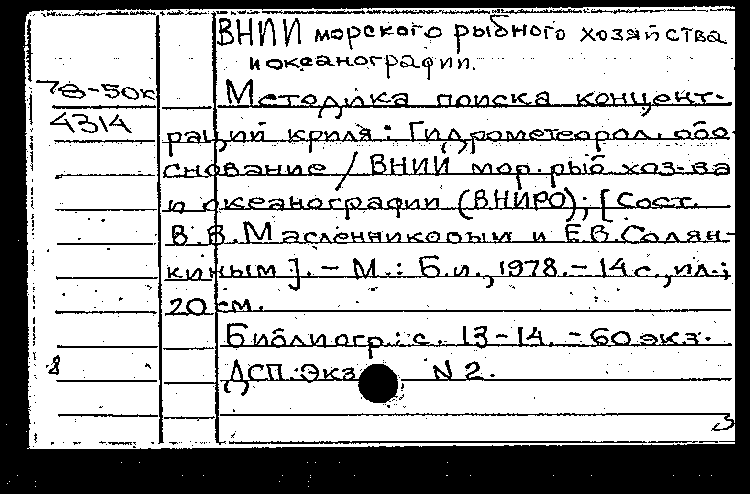 ВНИИ морского рыбного хозяйства
и океанографии.
78-50к
Методика поиска концент-
4314
раций криля: Гидрометеорол. обо-
снование / ВНИИ мор. рыб. хоз-ва
и океанографии (ВНИРО); [Сост.
В.В. Масленниковым и Е.В. Солян-
киным]. - М.: Б.и., 1978. - 14 с., ил.;
20 см.
Библиогр.: с. 13-14. - 60 экз.
8
ДСП. Экз. N 2.